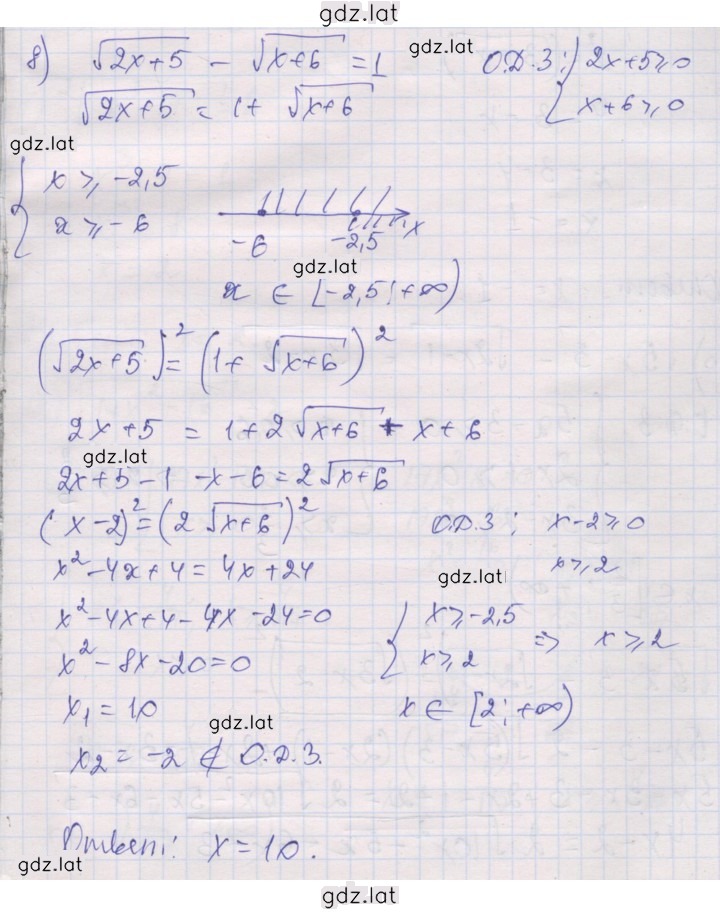 gdz.lat
8) √(2x+5) - √(x+6) = 1 О.Д.З: { 2x+5≥0
gdz.lat
√(2x+5) = 1+ √(x+6) x+6≥0
gdz.lat
{ x ≥ -2,5
x ≥ -6
-6 -2,5 x
gdz.lat
x ∈ [-2,5; +∞)
(√(2x+5))² = (1+ √(x+6))²
2x+5 = 1+2√(x+6) + x+6
gdz.lat
2x+5-1 -x-6 = 2√(x+6)
(x-2)² = (2√(x+6))² О.Д.З: x-2≥0
x²-4x+4 = 4x+24 x≥2
gdz.lat
x²-4x+4-4x-24=0 { x≥-2,5
x²-8x-20=0 x≥2 ⇒ x≥2
x₁ = 10 x ∈ [2; +∞)
gdz.lat
x₂ = -2 ∉ О.Д.З.
Ответ: x = 10.
gdz.lat
gdz.lat